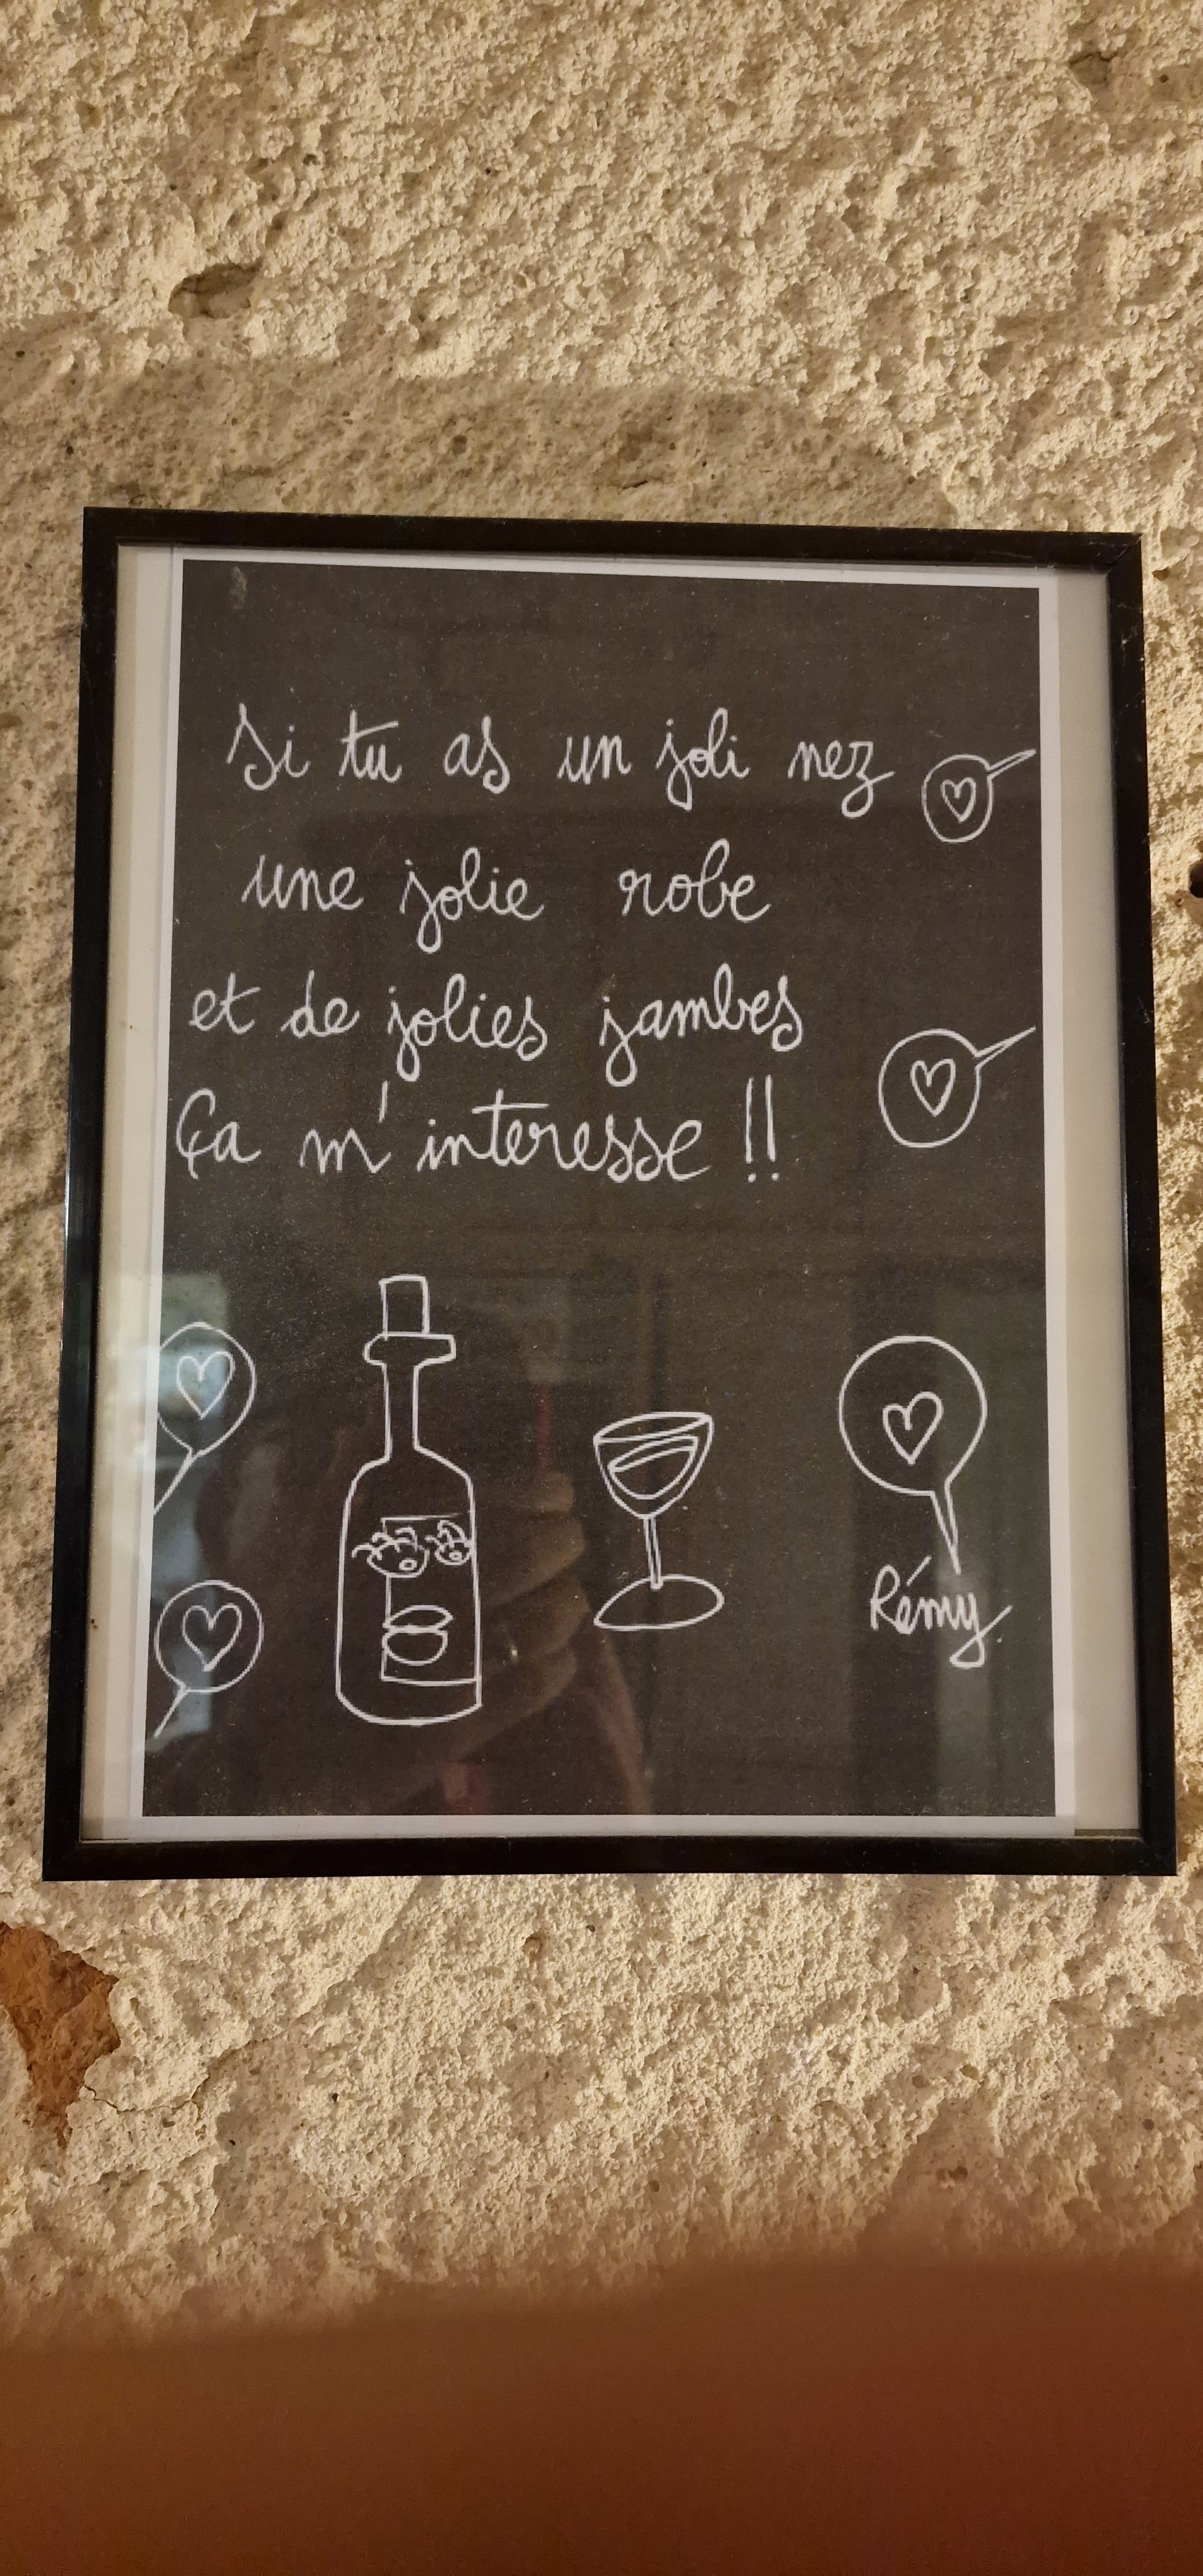 Si tu as un joli nez
une jolie robe
et de jolies jambes
Ça m'interesse !!
Rémy